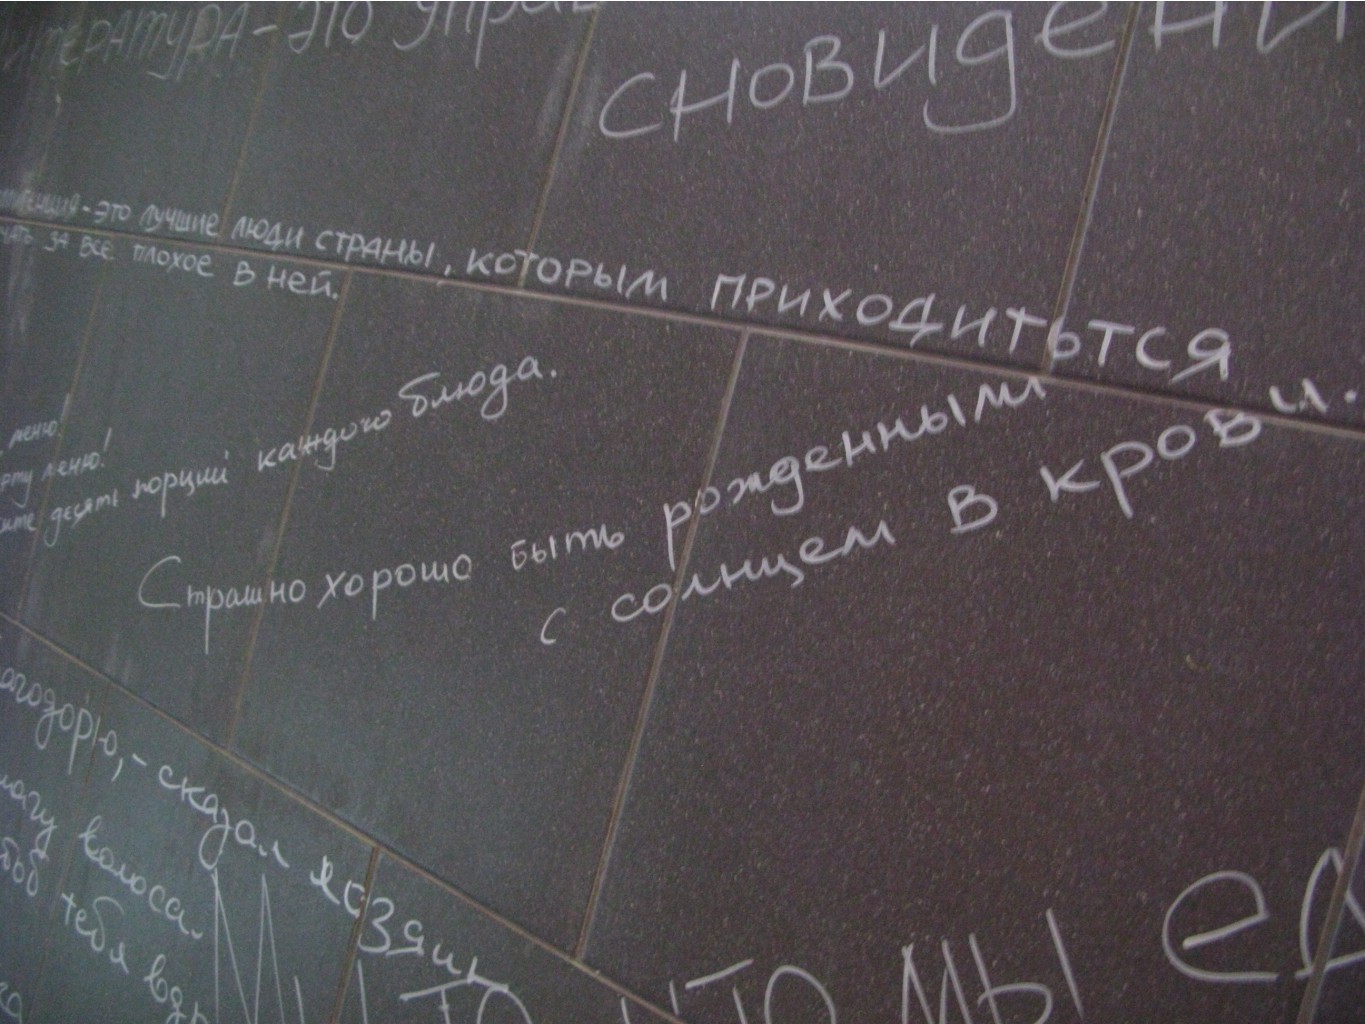 литература - это управ
сновидени
- это лучшие люди страны, которым приходиться
за все плохое в ней.
меню!
меню!
десять порций каждого блюда.
Страшно хорошо быть рожденным
с солнцем в крови.
- сказал хозяин
колоса.
тебя
Мы то, что мы ед